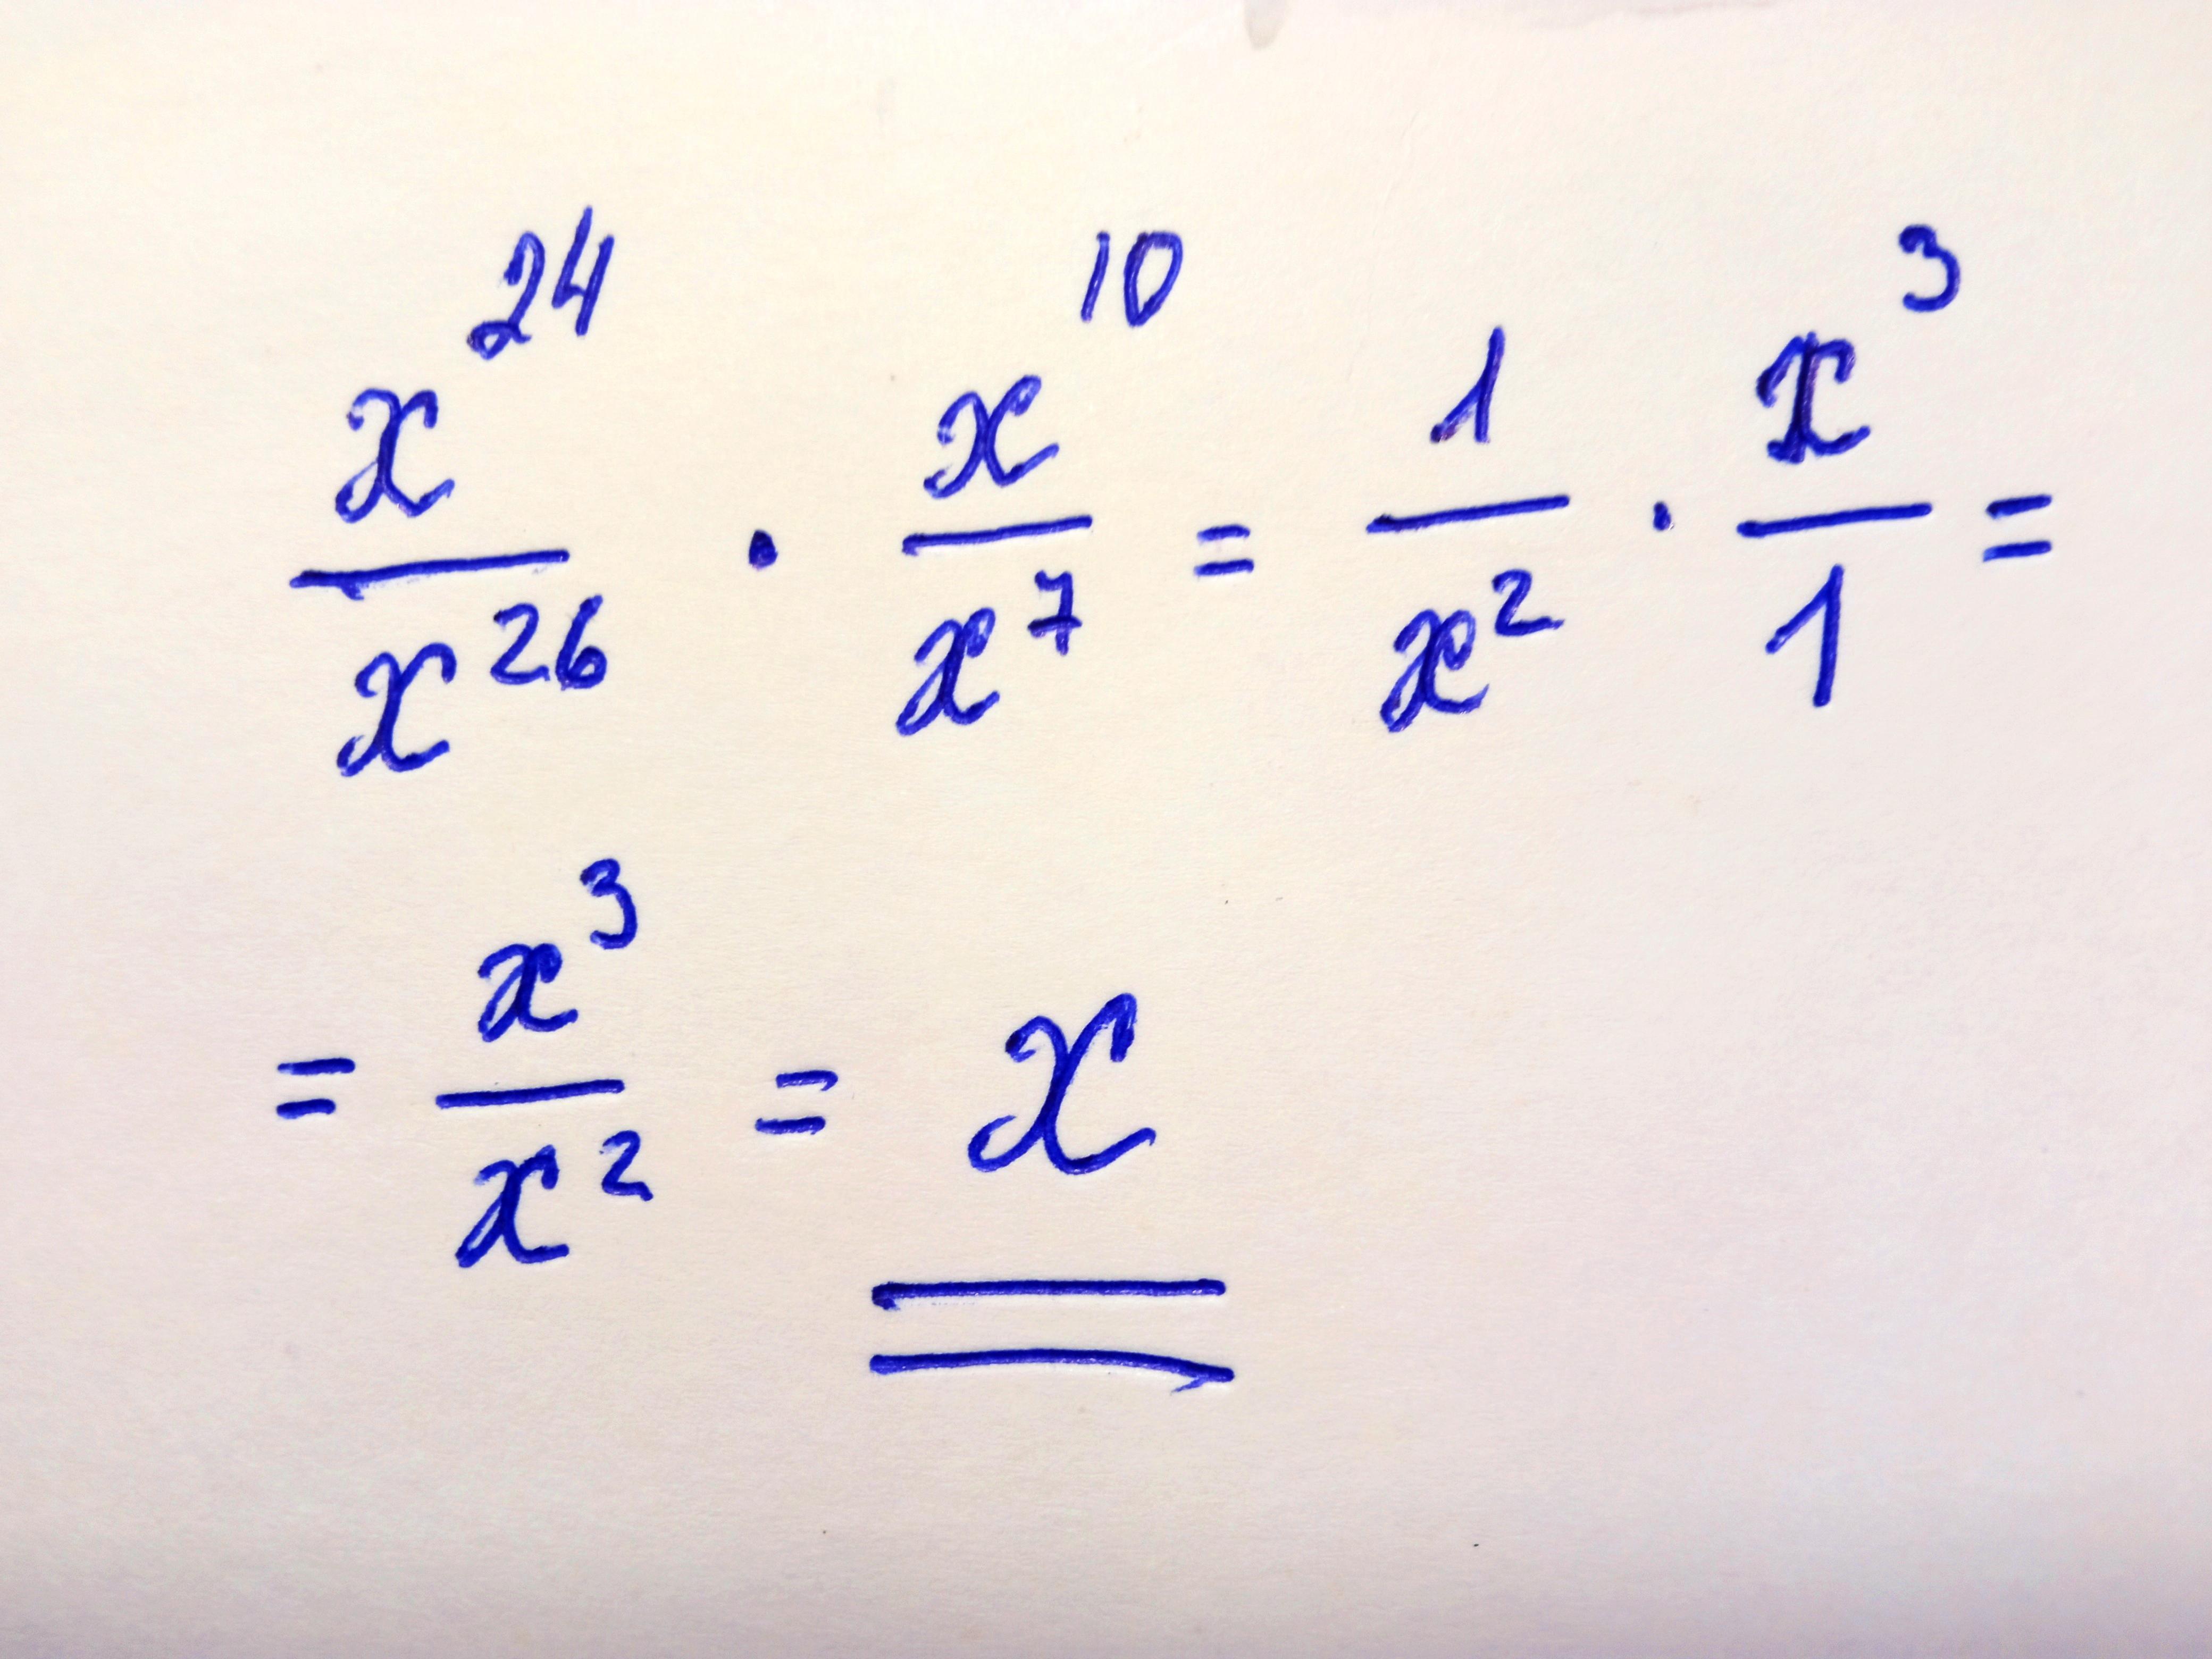 x^24/x^26 · x^10/x^7 = 1/x^2 · x^3/1 =
= x^3/x^2 = x